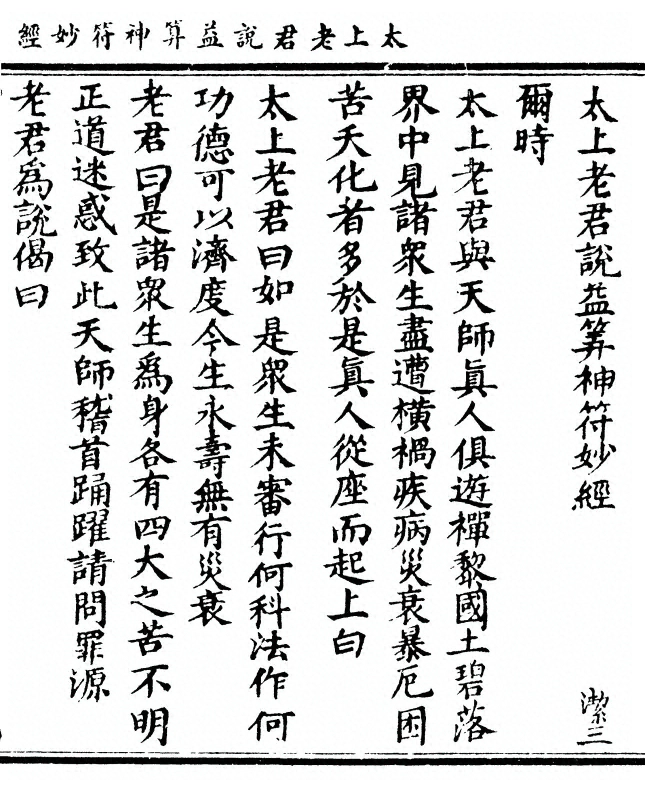 太上老君說益筭神符妙經
太上老君說益筭神符妙經
潔三
爾時
太上老君與天師眞人俱遊禪黎國土碧落
界中見諸衆生盡遭橫禍疾病災衰暴厄困
苦夭化者多於是眞人從座而起上白
太上老君曰如是衆生未審行何科法作何
功德可以濟度今生永壽無有災衰
老君曰是諸衆生爲身各有四大之苦不明
正道迷惑致此天師稽首踊躍請問罪源
老君爲說偈曰